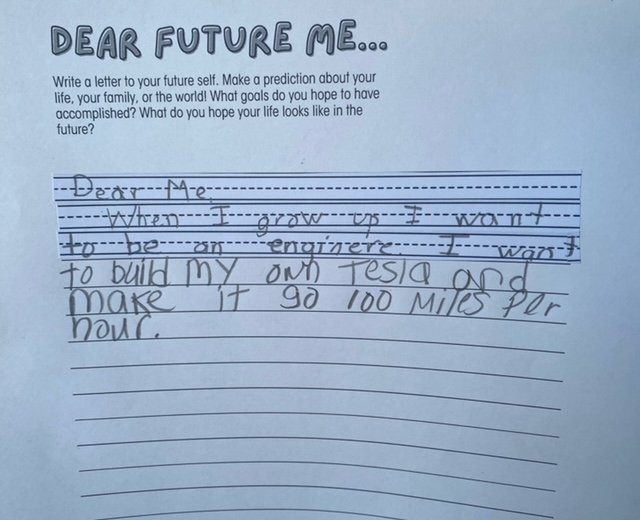 DEAR FUTURE ME...
Write a letter to your future self. Make a prediction about your
life, your family, or the world! What goals do you hope to have
accomplished? What do you hope your life looks like in the
future?
Dear Me,
When I grow up I want
to be an enginere. I want
to build my own Tesla and
make it go 100 Miles Per
hour.